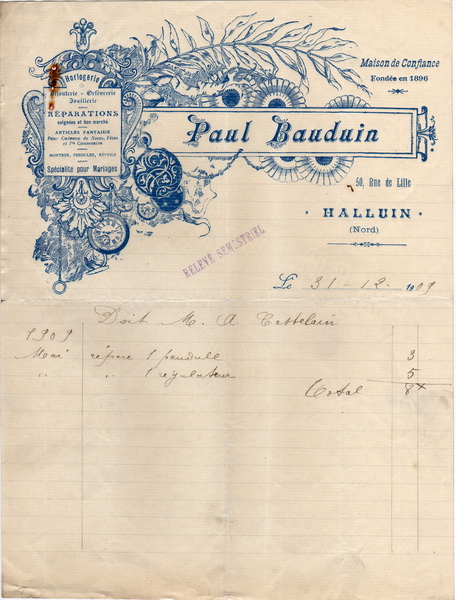 Horlogerie
Bijouterie - Orfèvrerie
Joaillerie
RÉPARATIONS
soignées et bon marché
ARTICLES FANTAISIE
Pour Cadeaux de Noces, Fêtes
et 1re Communion
MONTRES, PENDULES, RÉVEILS
Spécialité pour Mariages
Maison de Confiance
Fondée en 1896
Paul Bauduin
50, Rue de Lille
HALLUIN
(Nord)
RELEVÉ SEMESTRIEL
Le 31-12-1909
Doit M. A. Castelain
1909
Mai répare 1 pendule 3
" " 1 régulateur 5
Total 8